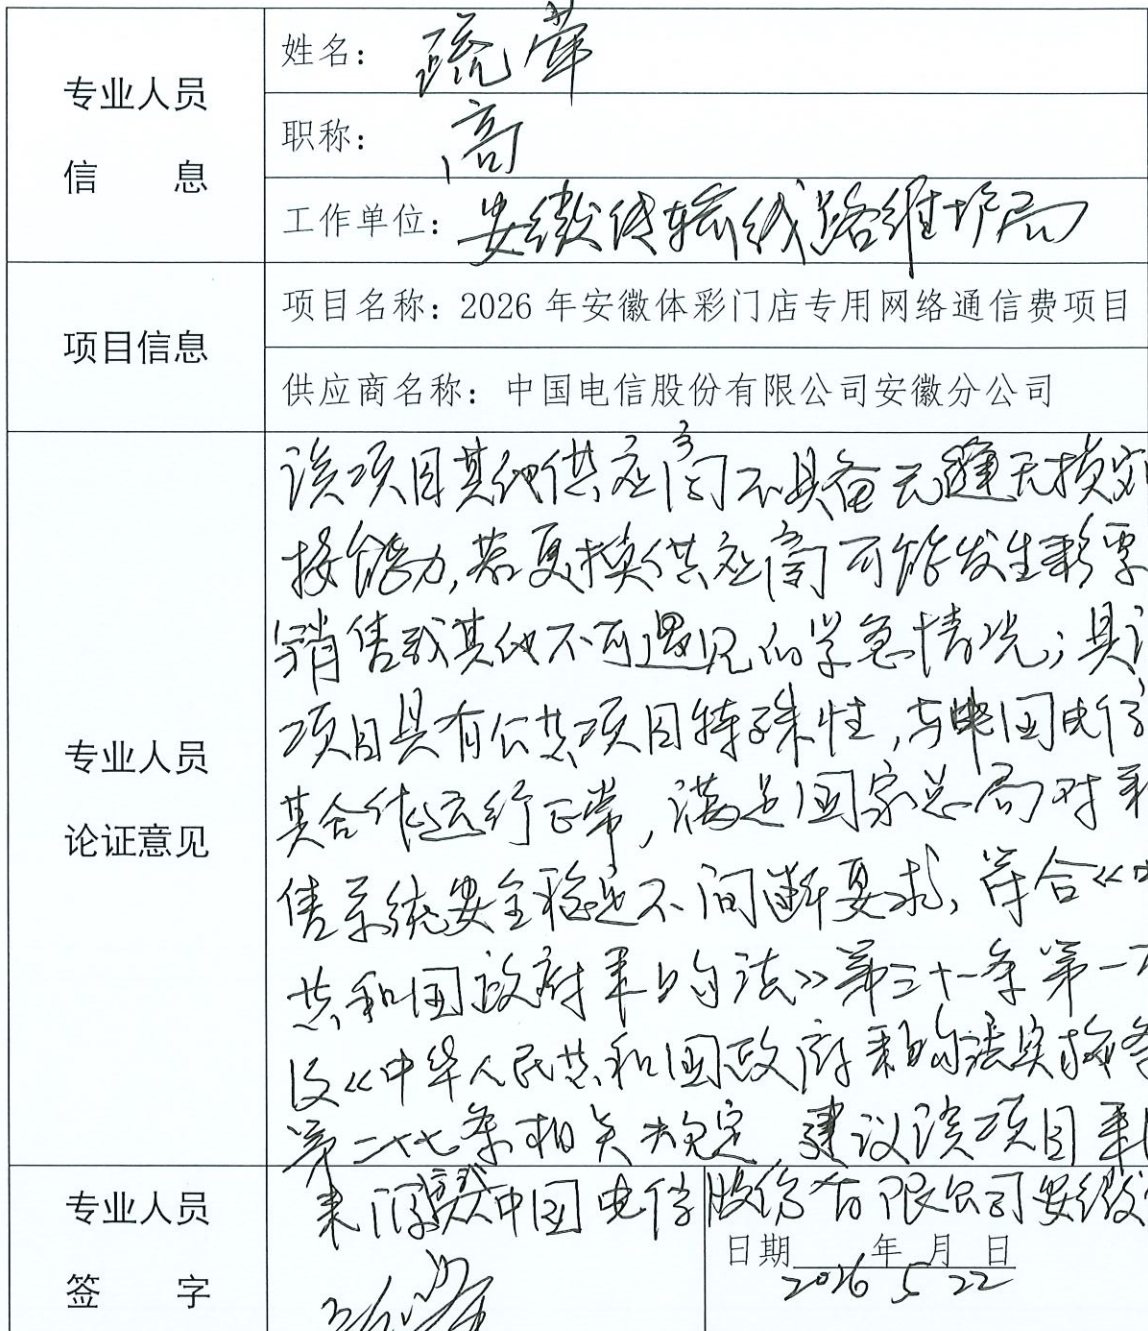 专业人员
信 息
姓名：
职称：高
工作单位：安徽传输线路维护局
项目信息
项目名称：2026年安徽体彩门店专用网络通信费项目
供应商名称：中国电信股份有限公司安徽分公司
专业人员
论证意见
该项目其他供应商不具备无缝无损
接能力，若更换供应商可能发生彩票
销售或其他不可遇见的紧急情况；具
项目具有公共项目特殊性，与中国电信
其合作运行正常，满足国家总局对
售系统安全稳定不间断要求，符合《
共和国政府采购法》第三十一条第一
及《中华人民共和国政府采购法实施条
第二十七条相关规定 建议该项目采
中国电信股份有限公司安徽
专业人员
签 字
日期 年 月 日
2026 5 22